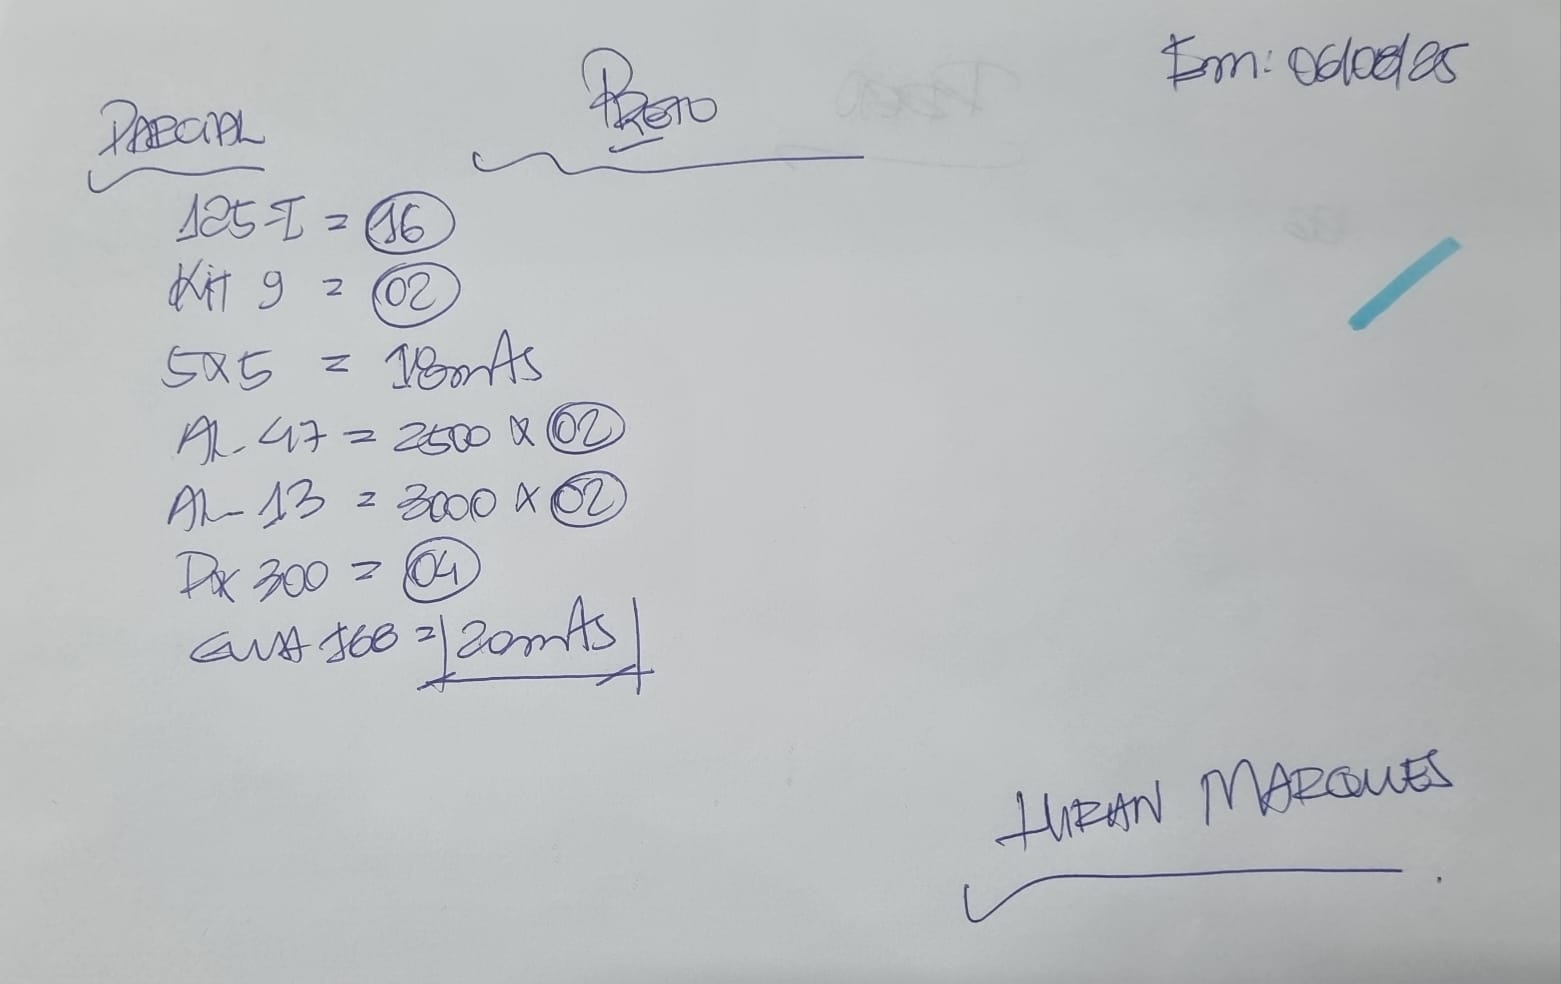 Em: 06/08/25
PARCIAL
PRETO
125-I = 16
Kit 9 = 02
5x5 = 18mts
AL-47 = 2500 x 02
AL-13 = 3000 x 02
300 = 04
168 = 20mts
MARQUES